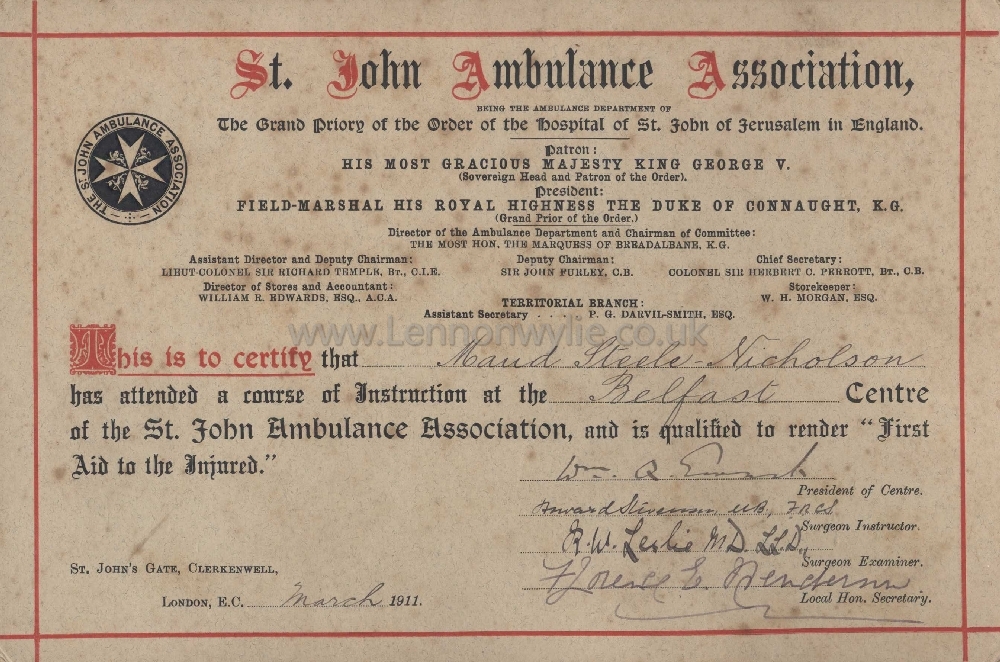 St. John Ambulance Association,
BEING THE AMBULANCE DEPARTMENT OF
The Grand Priory of the Order of the Hospital of St. John of Jerusalem in England.
THE ST JOHN AMBULANCE ASSOCIATION
Patron:
HIS MOST GRACIOUS MAJESTY KING GEORGE V.
(Sovereign Head and Patron of the Order).
President:
FIELD-MARSHAL HIS ROYAL HIGHNESS THE DUKE OF CONNAUGHT, K.G.
(Grand Prior of the Order.)
Director of the Ambulance Department and Chairman of Committee:
THE MOST HON. THE MARQUESS OF BREADALBANE, K.G.
Assistant Director and Deputy Chairman: Deputy Chairman: Chief Secretary:
LIEUT-COLONEL SIR RICHARD TEMPLE, BT., C.I.E. SIR JOHN FURLEY, C.B. COLONEL SIR HERBERT C. PERROTT, BT., C.B.
Director of Stores and Accountant: Storekeeper:
WILLIAM R. EDWARDS, ESQ., A.C.A. W. H. MORGAN, ESQ.
TERRITORIAL BRANCH:
Assistant Secretary . . . P. G. DARVIL-SMITH, ESQ.
www.Lennonwylie.co.uk
This is to certify that Maud Steele-Nicholson
has attended a course of Instruction at the Belfast Centre
of the St. John Ambulance Association, and is qualified to render "First
Aid to the Injured."
Wm. Q.
President of Centre.
Howard Stevenson M.B., FRCS
Surgeon Instructor.
R. W. Leslie MD. LL.D.,
Surgeon Examiner.
Florence E Henderson
Local Hon. Secretary.
ST. JOHN'S GATE, CLERKENWELL,
LONDON, E.C. March 1911.